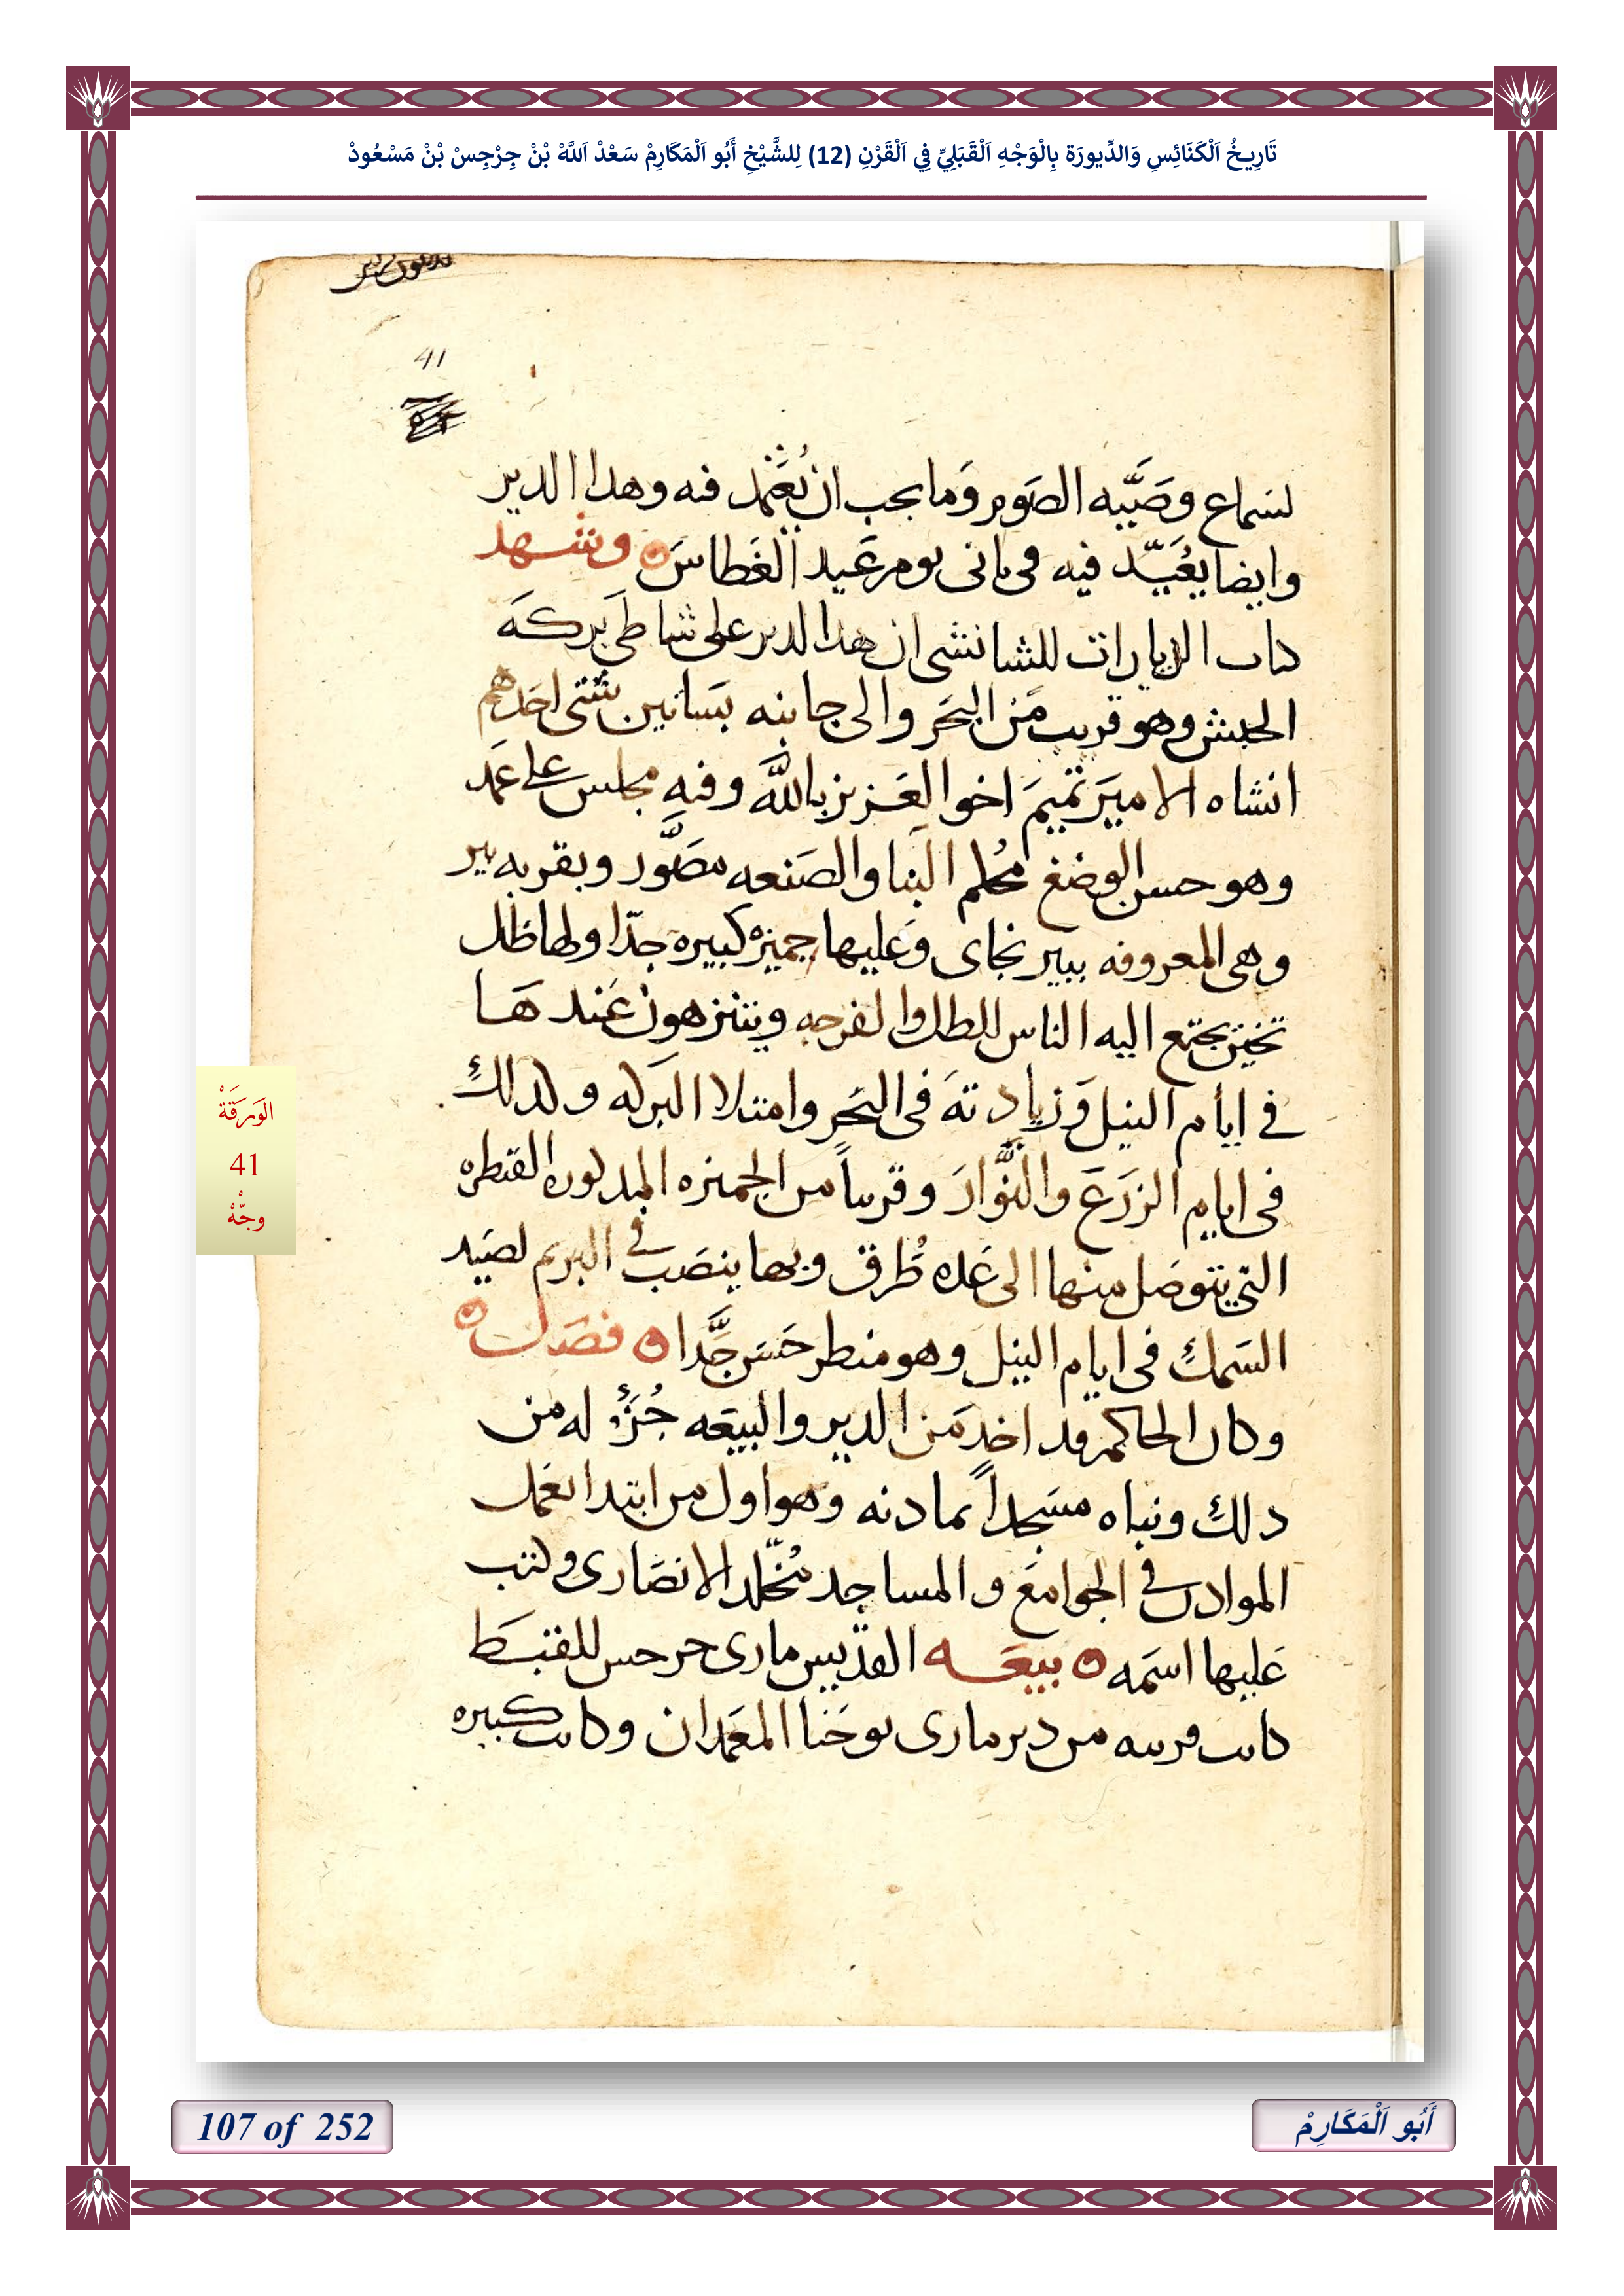 تَارِيخُ اَلْكَنَائِسِ وَالدِّيورَة بِالْوَجْهِ اَلْقَبَلِيِّ فِي اَلْقَرْنِ (12) لِلشَّيْخِ أَبُو اَلْمَكَارِمْ سَعْدْ اَللَّهْ بْنْ جِرْجِسْ بْنْ مَسْعُودْ
41
لسماع وصيه الصوم وما يجب ان يعتمد فيه وهدا الدير
وايضا يعيد فيه فى تانى يوم عيد الغطاس وشهد
كتاب الزيارات للشابشتى ان هدا الدير على شاطى بركه
الحبش وهو قريب من البحر والى جانبه بساتين شتى احدهم
انشاه الامير تميم اخو العزيز بالله وفيه مجلس على عمد
وهو حسن الوضع محكم البنا والصنعه مصور وبقربه بير
وهى المعروفه ببير نجاى وعليها جميزه كبيره جدا ولها ظل
تخين يجتمع اليه الناس للطل والفرجه ويتنزهون عندها
فى ايام النيل وزيادته فى البحر وامتلا البركه وكدلك
فى ايام الزرع والنوار وقريباً من الجميزه المدكوره القنطره
التى يتوصل منها الى عده طرق وبها ينصب فى البريم لصيد
السمك فى ايام النيل وهو منظر حسن جدا فصل
وكان الحاكم قد اخد من الدير والبيعه جزؤ له من
دلك وبناه مسجداً بمادنه وهو اول من ابتدا بعمل
الموادن فى الجوامع والمساجد الانصارى وكتب
عليها اسمه بيعه القديس مارى جرجس للقبط
كانت قريبه من دير مارى يوحنا المعمدان وكانت كبيره
الوَرَقَةْ
41
وجّهْ
107 of 252
أَبُو اَلْمَكَارِمْ